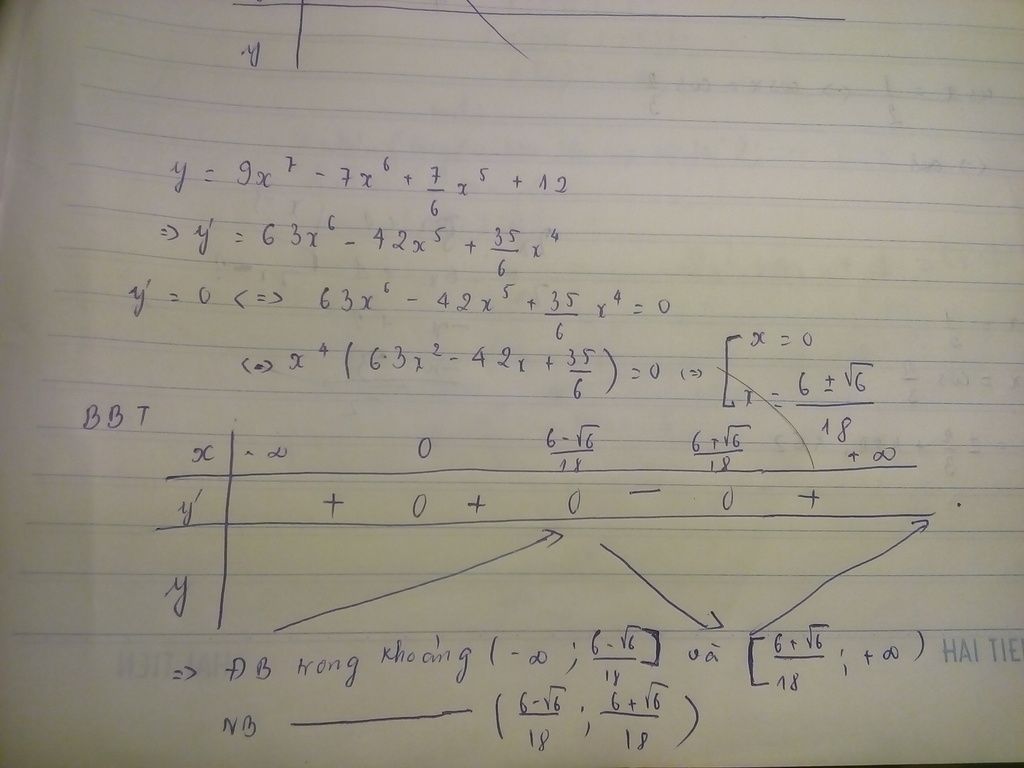 y
y = 9x^7 - 7x^6 + 7/6 x^5 + 12
=> y' = 63x^6 - 42x^5 + 35/6 x^4
y' = 0 <=> 63x^6 - 42x^5 + 35/6 x^4 = 0
<=> x^4 (63x^2 - 42x + 35/6) = 0 <=> [ x = 0
x = (6 ± √6)/18
BBT
x -∞ 0 (6-√6)/18 (6+√6)/18 +∞
y' + 0 + 0 - 0 +
y
=> ĐB trong khoảng (-∞ ; (6-√6)/18] và [(6+√6)/18 ; +∞)
HAI TIEN
NB ——— ((6-√6)/18 ; (6+√6)/18)